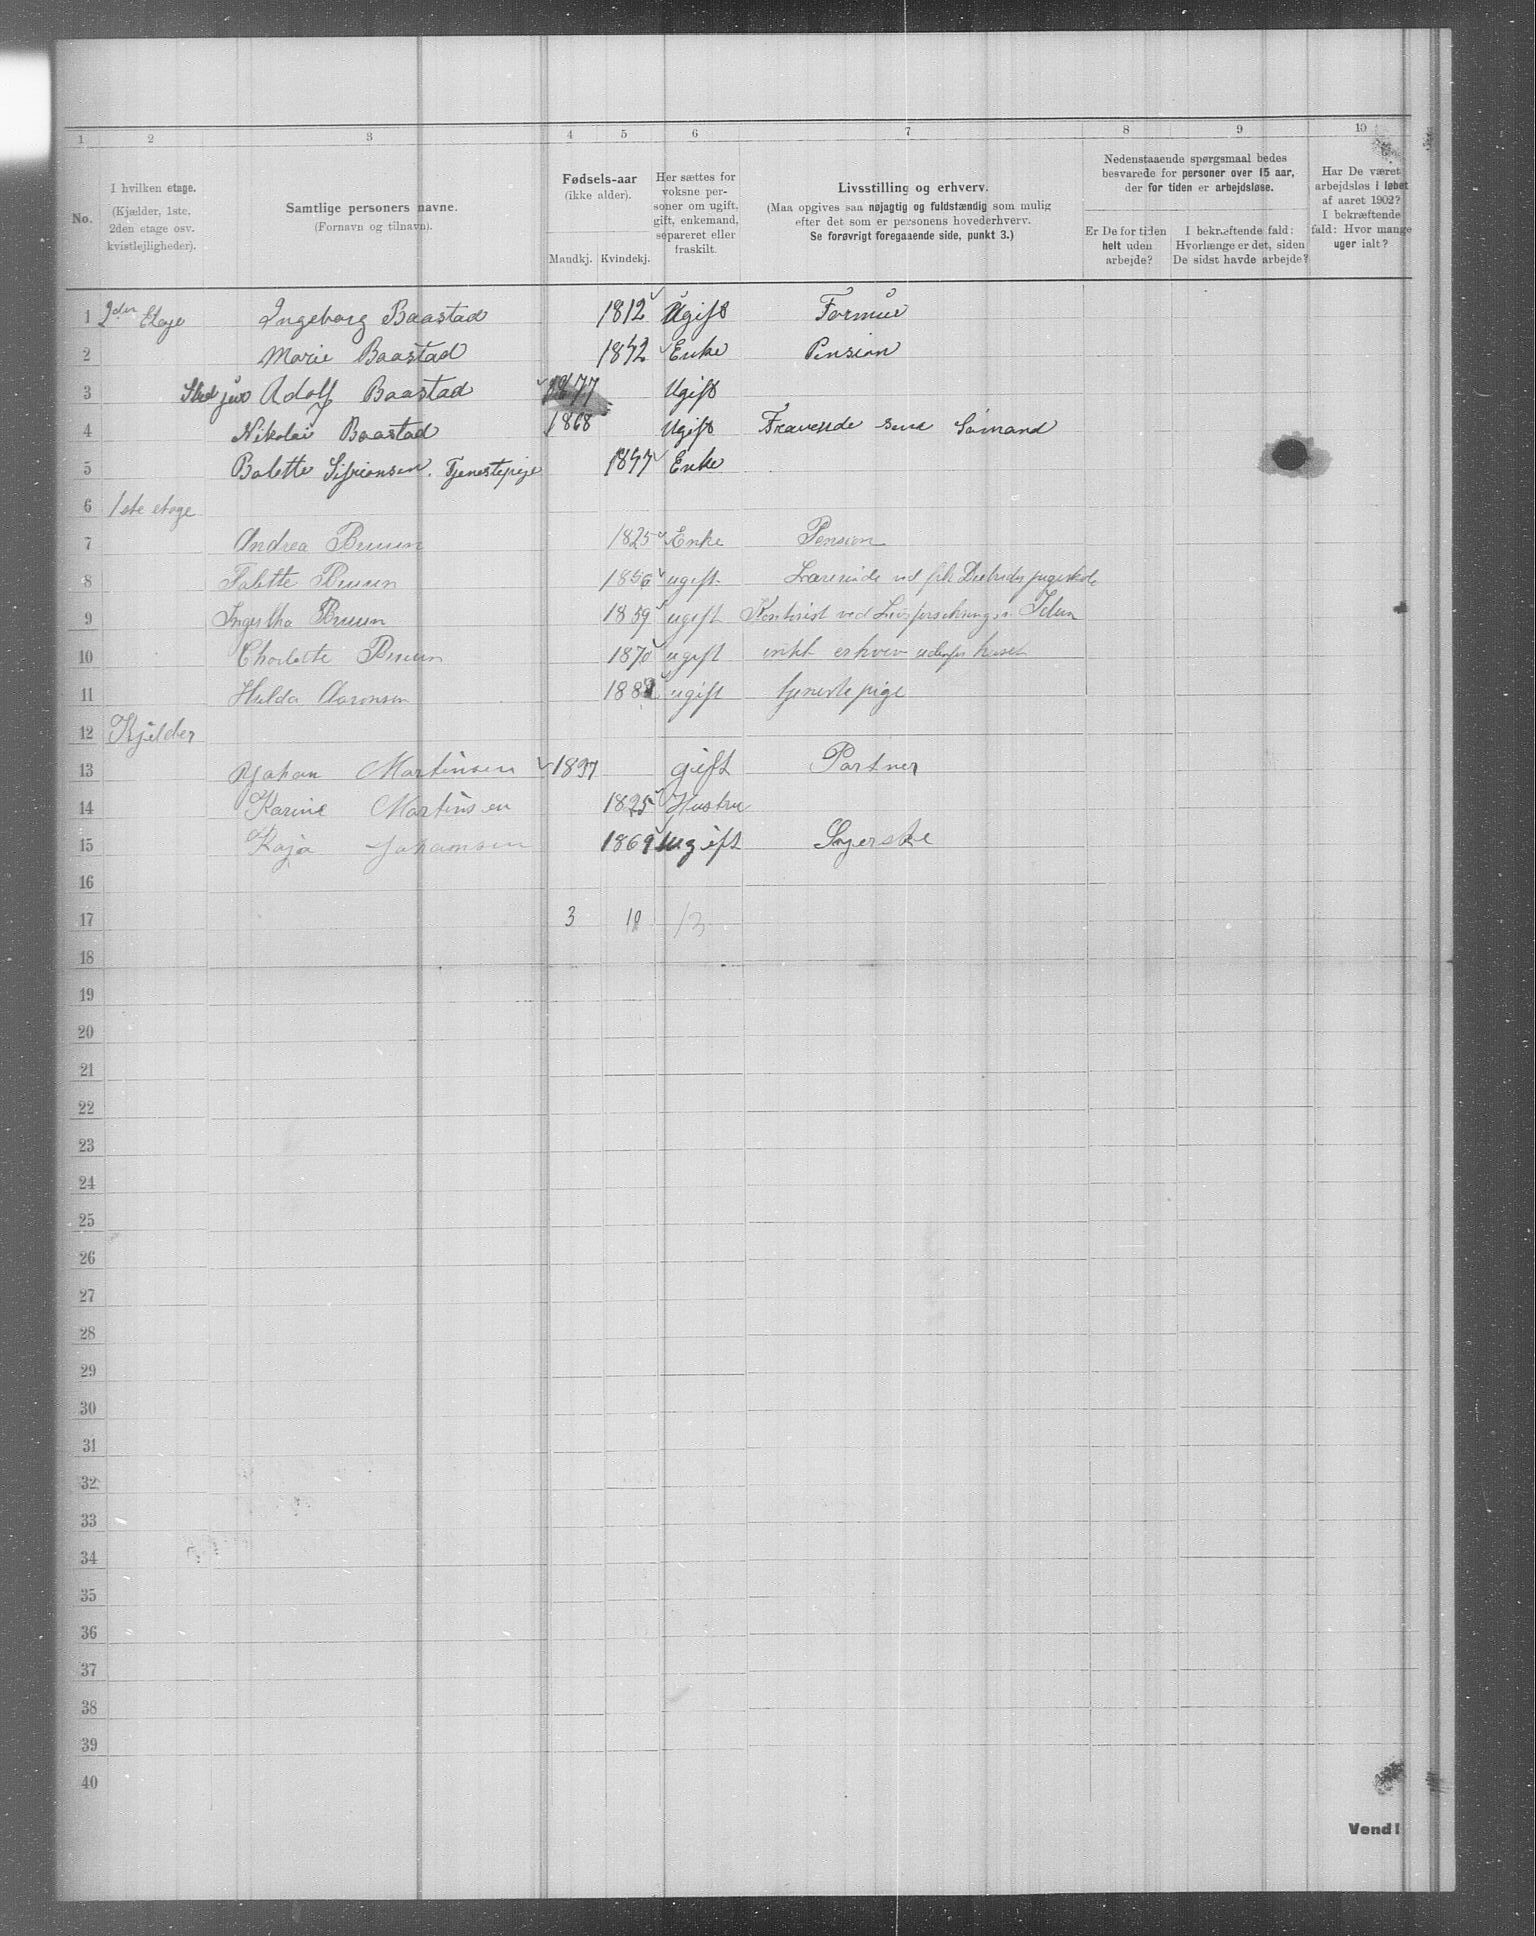 1 2 3 4 5 6 7 8 9 10
No.
I hvilken etage.
(Kjælder, 1ste.
2den etage osv.
kvistlejligheder).
Samtlige personers navne.
(Fornavn og tilnavn).
Fødsels-aar
(ikke alder).
Mandkj. Kvindekj.
Her sættes for
voksne per-
soner om ugift,
gift, enkemand,
separeret eller
fraskilt.
Livsstilling og erhverv.
(Maa opgives saa nøjagtig og fuldstændig som mulig
efter det som er personens hovederhverv.
Se forøvrigt foregaaende side, punkt 3.)
Nedenstaaende spørgsmaal bedes
besvarede for personer over 15 aar,
der for tiden er arbejdsløse.
Er De for tiden
helt uden
arbejde?
I bekræftende fald:
Hvorlænge er det, siden
De sidst havde arbejde?
Har De været
arbejdsløs i løbet
af aaret 1902?
I bekræftende
fald: Hvor mange
uger ialt?
1 2den Etage Ingeborg Baastad 1812 Ugift Formue
2 Marie Baastad 1842 Enke Pension
3 Adolf Baastad 1877 Ugift
4 Nikolai Baastad 1868 Ugift Fraværende som Sømand
5 Bolette Tjenestepige 1847 Enke
6 1ste etage
7 Andrea Bruun 1825 Enke Pension
8 Bruun 1856 ugift Lærerinde ved pigeskole
9 Bruun 1859 ugift Kontorist ved Livsforsikrings Idun
10 Charlotte Bruun 1870 ugift intet erhverv udenfor huset
11 Hulda Aaronsen 188 ugift tjenestepige
12 Kjelder
13 Johan Martinsen 1837 gift Portner
14 Karine Martinsen 1825 Hustru
15 Kaja Johansen 1869 Ugift Syerske
16
17 3 10 13
18
19
20
21
22
23
24
25
26
27
28
29
30
31
32
33
34
35
36
37
38
39
40
Vend!